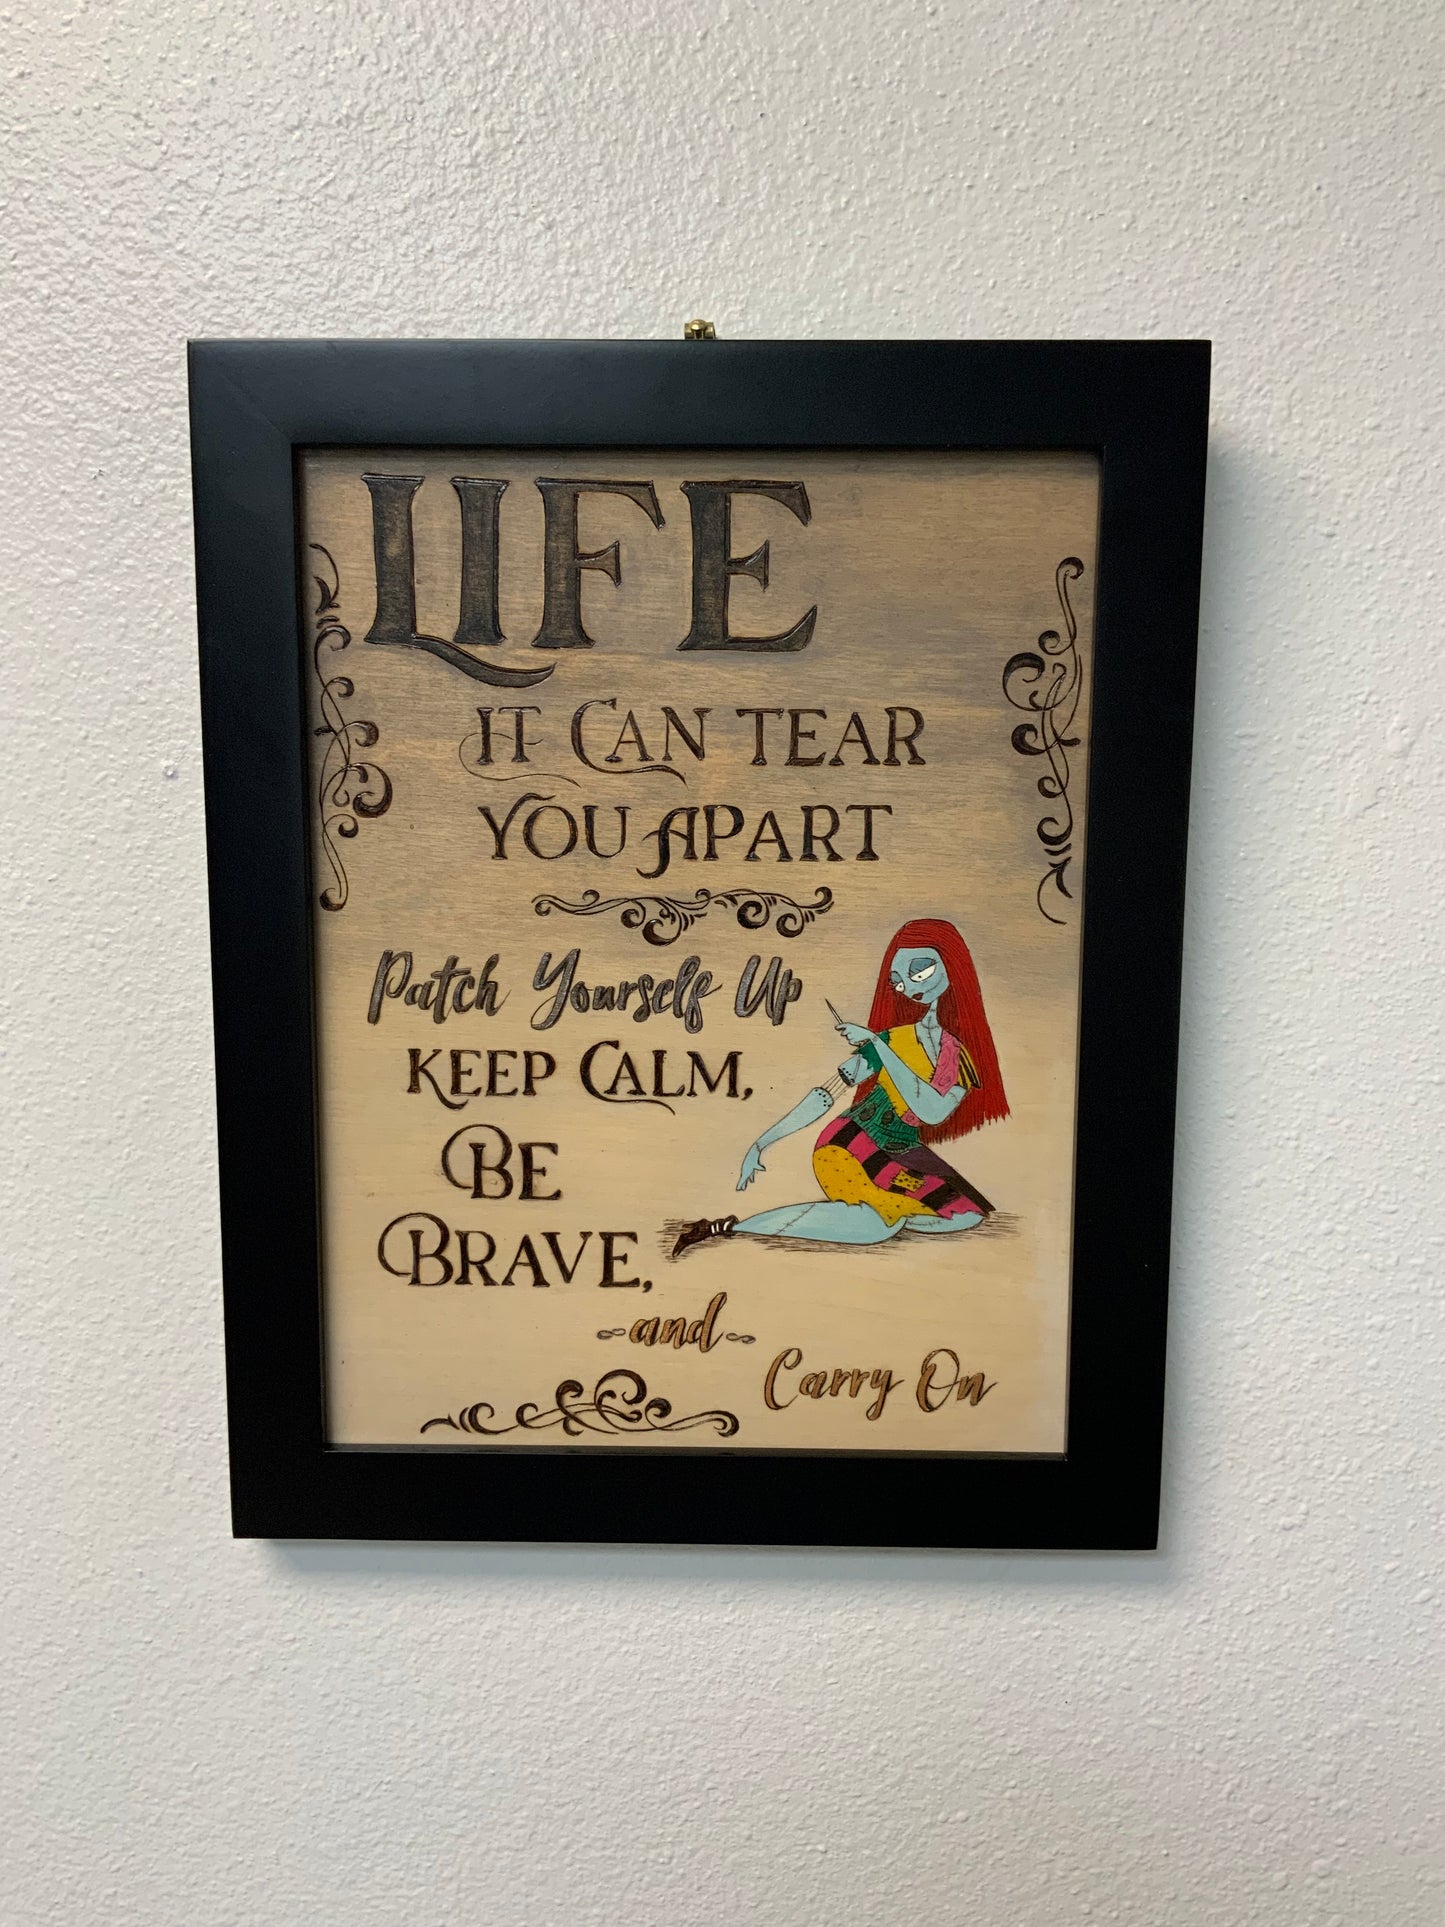 LIFE
IT CAN TEAR
YOU APART
Patch Yourself Up
KEEP CALM,
BE
BRAVE,
and
Carry On